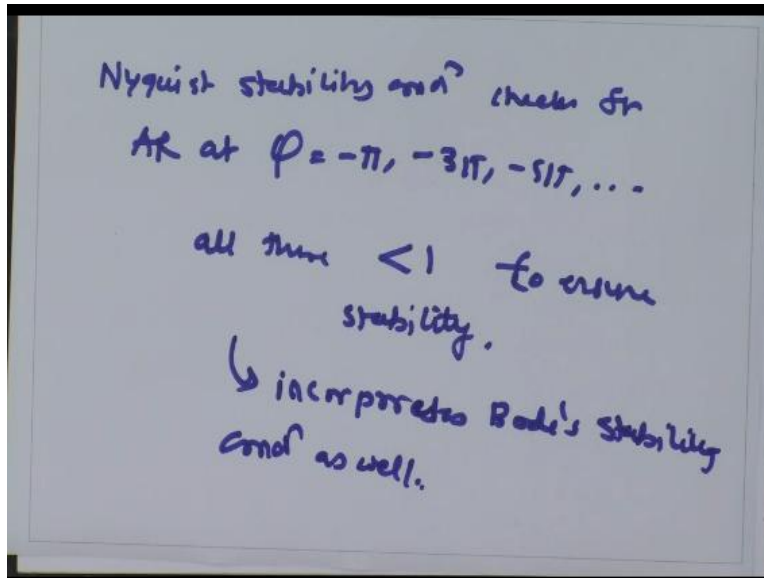 Nyquist stability condⁿ checks for
AR at φ = -π, -3π, -5π, ...
all these < 1 to ensure
stability.
↳ incorporates Bode's stability
condⁿ as well.